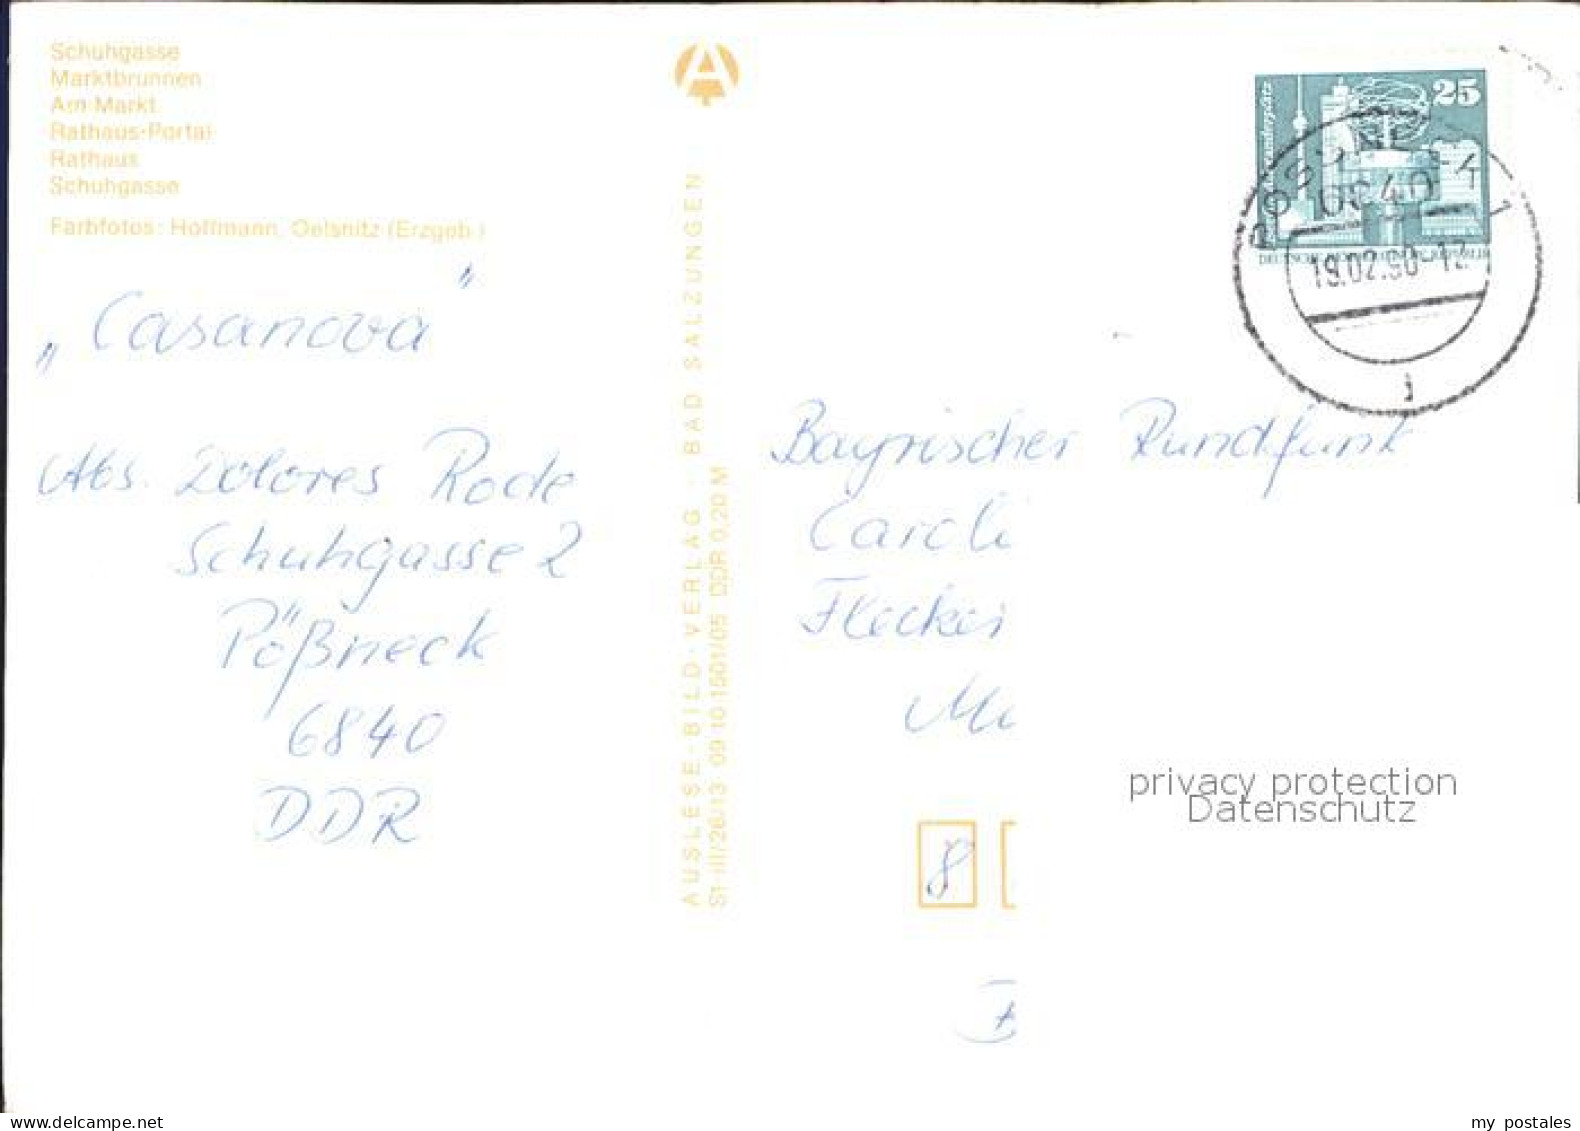 Schuhgasse
Marktbrunnen
Am Markt
Rathaus-Portal
Rathaus
Schuhgasse
Farbfotos: Hoffmann, Oelsnitz (Erzgeb.)
„Casanova"
Abs. Dolores Rode
Schuhgasse 2
Pößneck
6840
DDR
AUSLESE-BILD-VERLAG · BAD SALZUNGEN
S1-III/26/13 09 10 1501/05 DDR 0,20 M
25
19.02.90-12
Bayrischer Rundfunk
8
privacy protection
Datenschutz
www.delcampe.net
my_postales